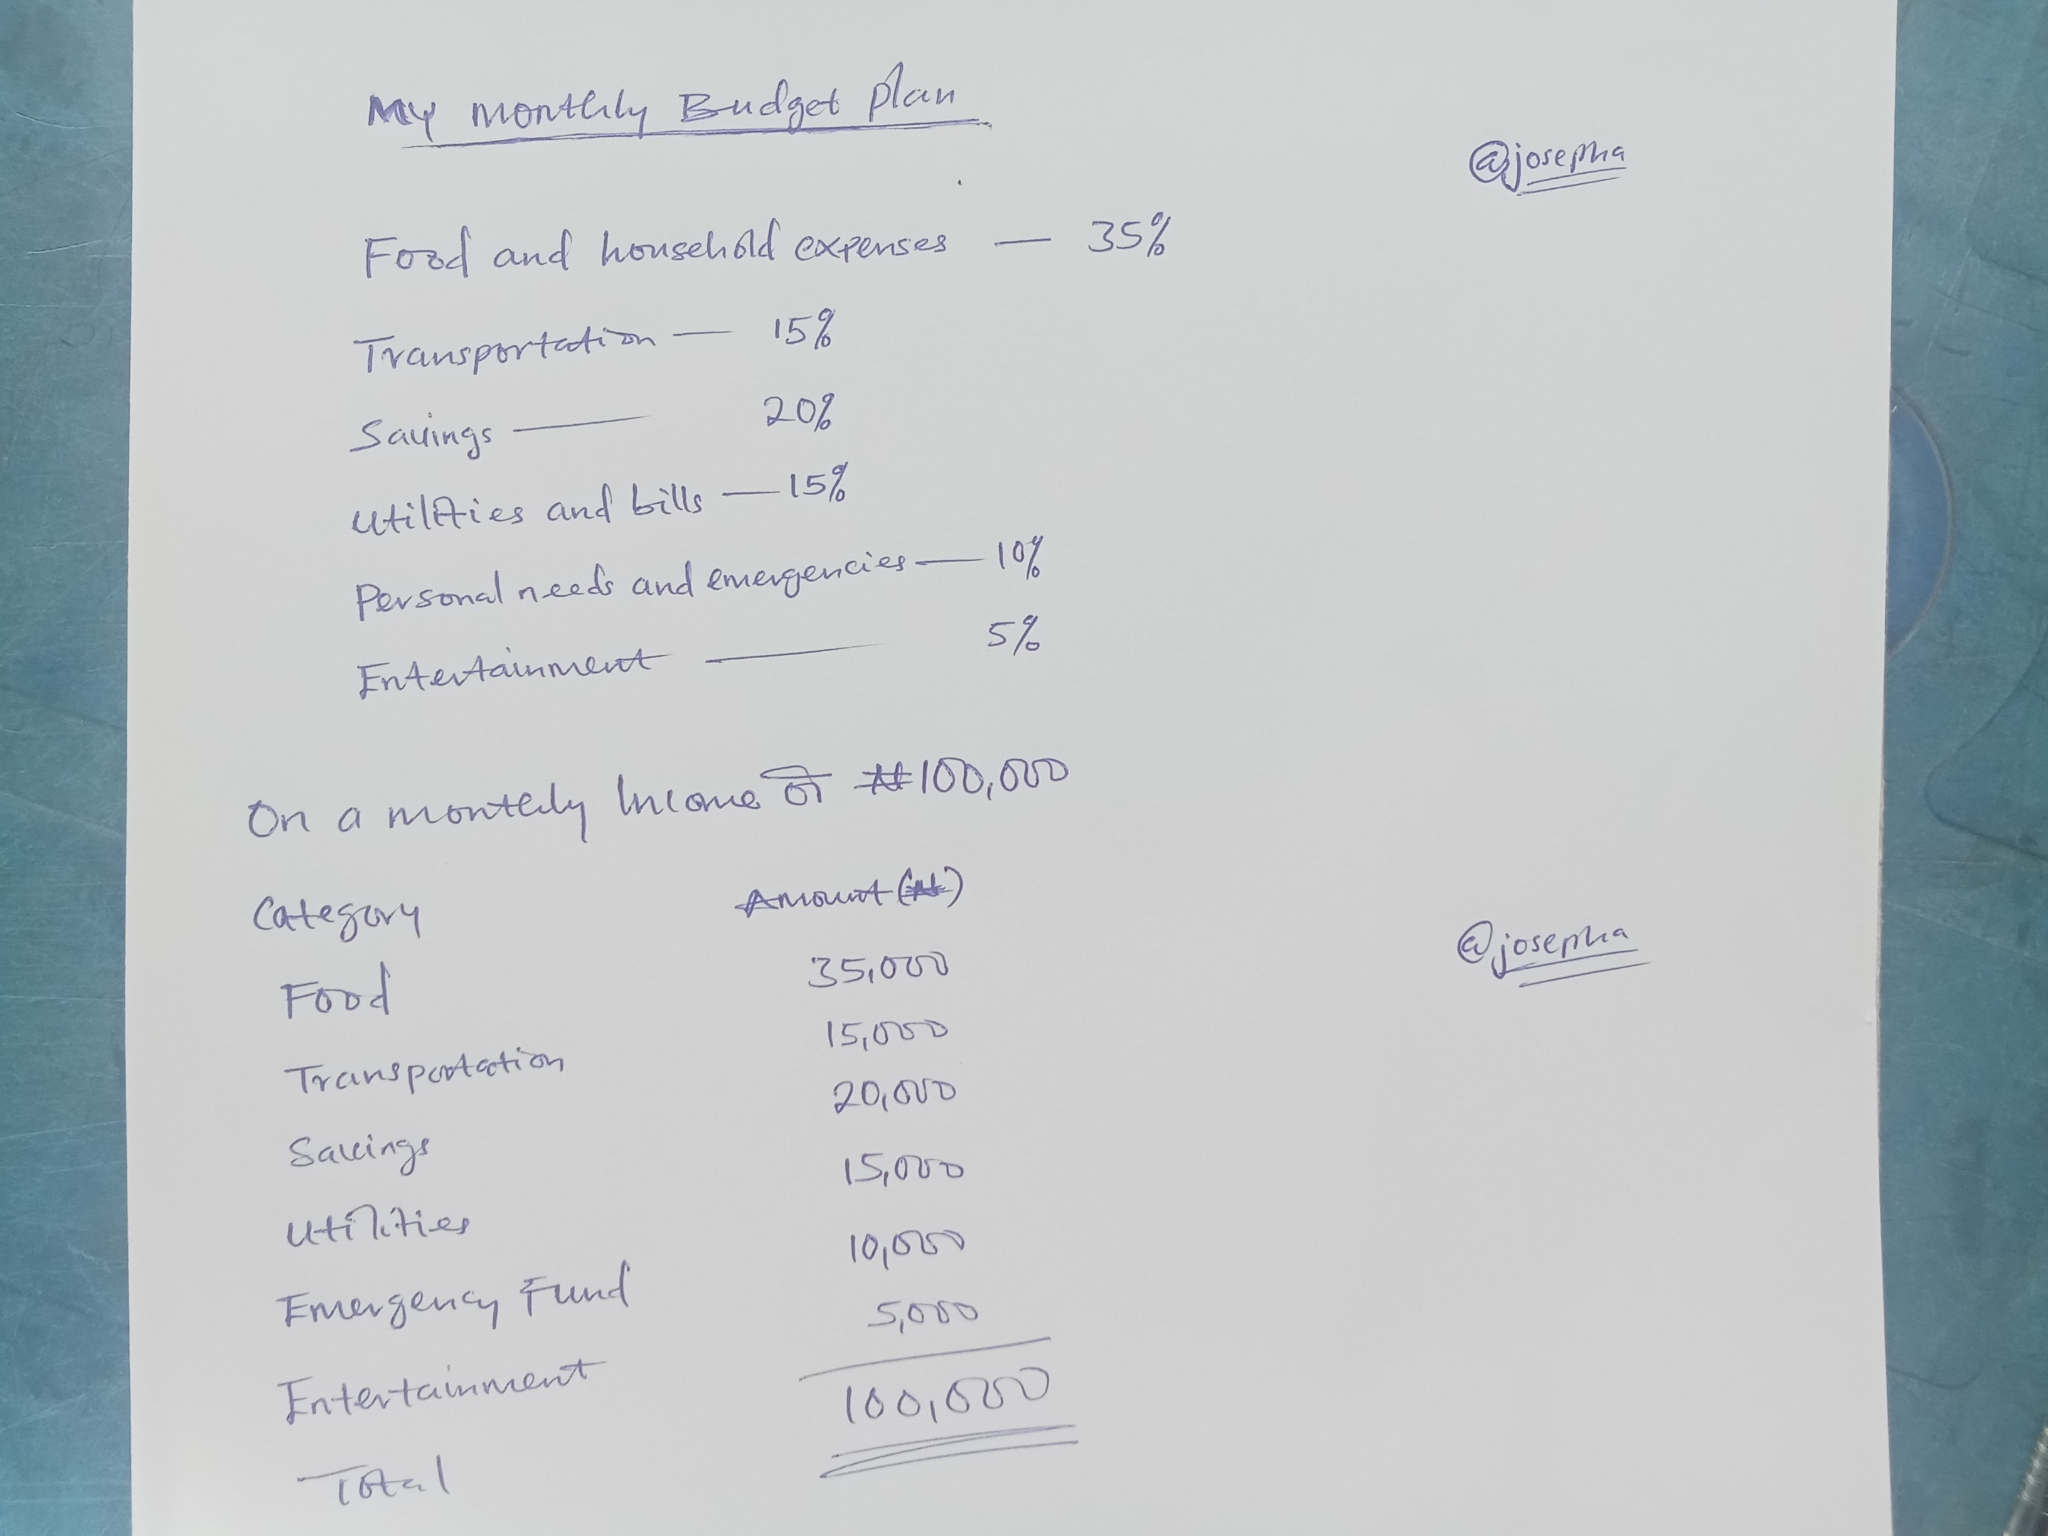 My monthly Budget plan
@josepha
Food and household expenses — 35%
Transportation — 15%
Savings — 20%
Utilities and bills — 15%
Personal needs and emergencies — 10%
Entertainment — 5%
On a monthly Income of ₦100,000
Category Amount (₦)
@josepha
Food 35,000
Transportation 15,000
Savings 20,000
Utilities 15,000
Emergency Fund 10,000
Entertainment 5,000
Total 100,000